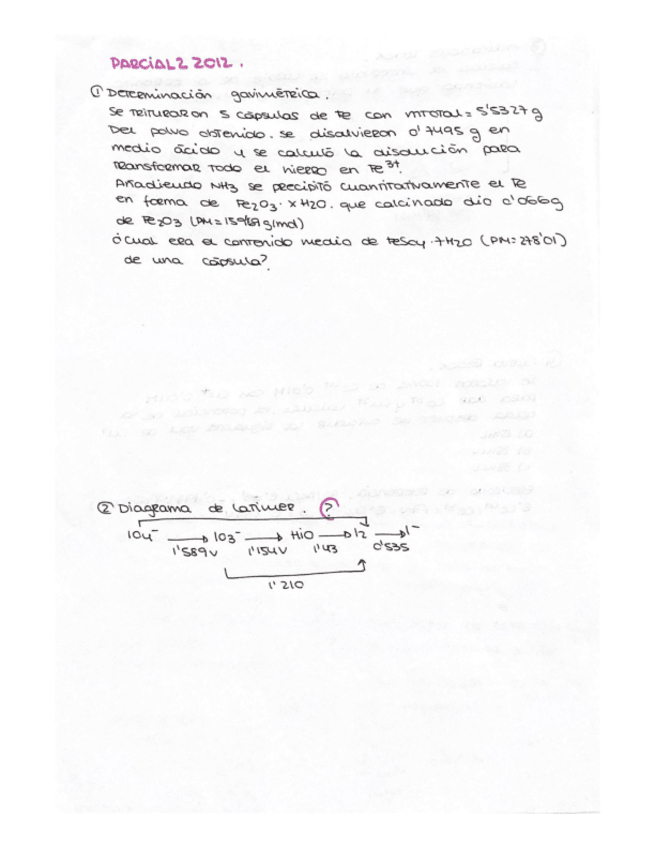 PARCIAL 2 2012.
① Determinación gavimétrica.
Se trituraron 5 cápsulas de Fe con mtotal = 5'5327g
Del polvo obtenido. se disolvieron 0'7495 g en
medio ácido y se calculó la disolución para
transformar todo el hierro en Fe3+.
Añadiendo NH3 se precipitó cuantitativamente el Fe
en forma de Fe2O3 · xH2O. que calcinado dio 0'066g
de Fe2O3 (PM = 159'69 g/mol)
¿cual era el contenido medio de FeSO4 · 7H2O (PM = 278'01)
de una cápsula?
② Diagrama de Latimer. ?
IO4- → IO3- → HIO → I2 → I-
1'589V 1'154V 1'43 0'535
1'210